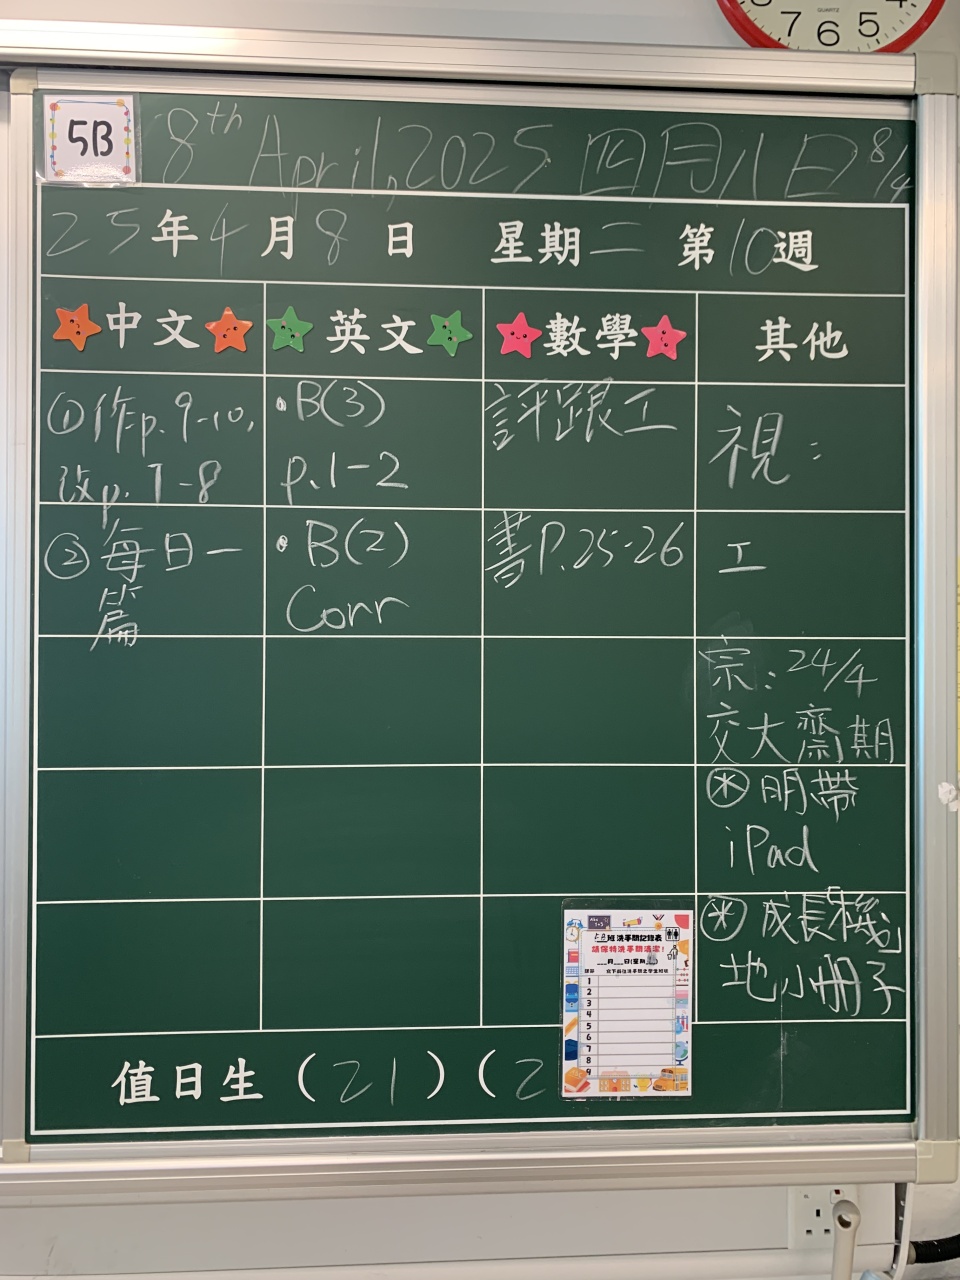 7 6 5
5B
8th April, 2025 四月八日 8/4
25年4月8日 星期二 第10週
中文 英文 數學 其他
①作p.9-10,
改p.7-8
②每日一
篇
•B(3)
p.1-2
•B(2)
Corr
評跟工
書P.25-26
視:
工
宗:24/4
交大齋期
* 明帶
iPad
* 成長「機」
地小冊子
5B班洗手間記錄表
請保持洗手間清潔!
月 日(星期 )
1
2
3
4
5
6
7
8
9
值日生(21)(2